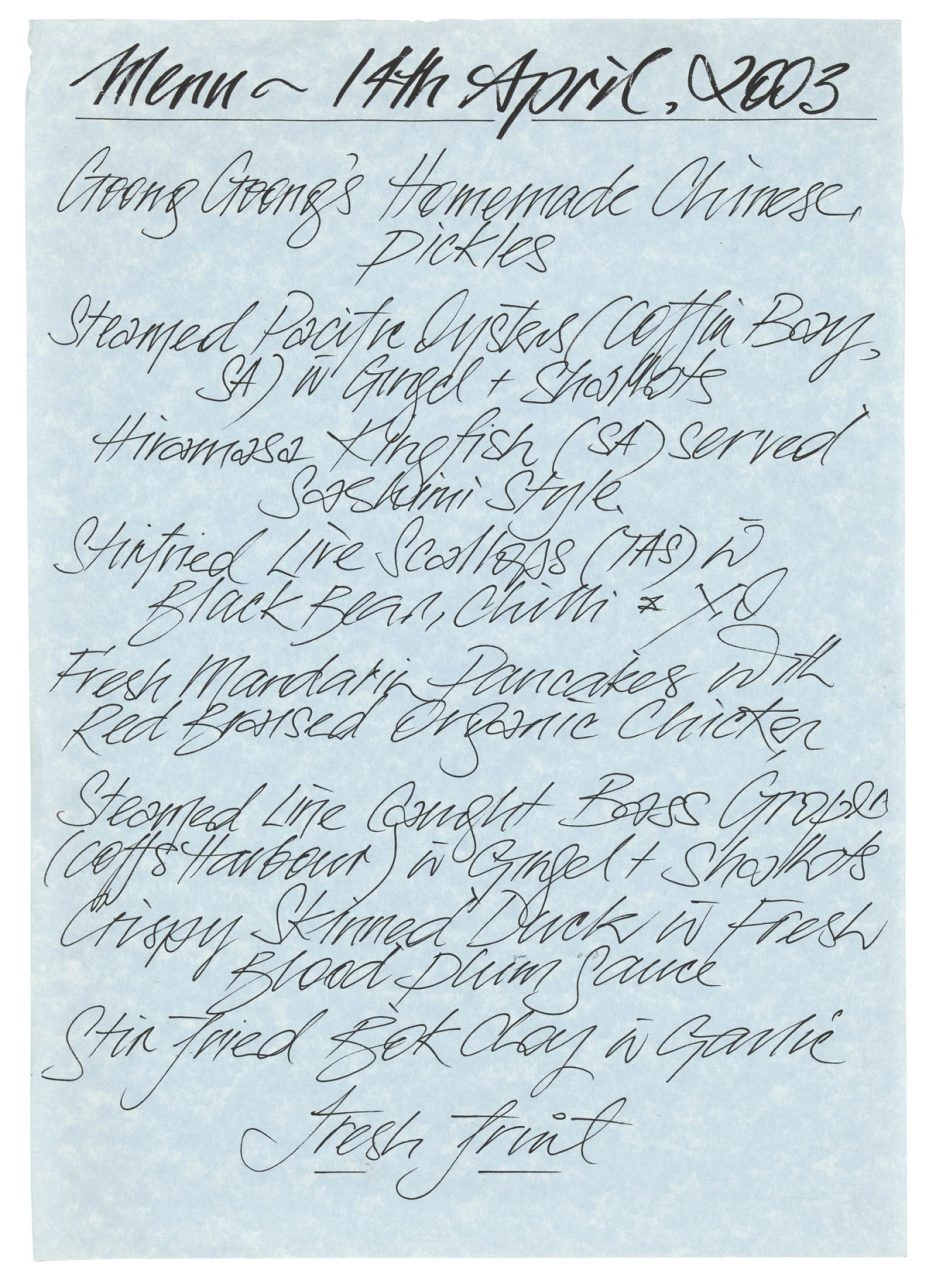 Menu ~ 14th April, 2003
Goong Goong's Homemade Chinese
Pickles
Steamed Pacific Oysters (Coffin Bay,
SA) w̄ Ginger + Shallots
Hiramasa Kingfish (SA) served
Sashimi Style.
Stirfried Live Scallops (TAS) w̄
Black Bean, Chilli & XO
Fresh Mandarin Pancakes with
Red Braised Organic Chicken
Steamed Line Caught Bass Groper
(Coffs Harbour) w̄ Ginger + Shallots
Crispy Skinned Duck w̄ Fresh
Blood Plum Sauce
Stir Fried Bok Choy w̄ Garlic
Fresh Fruit